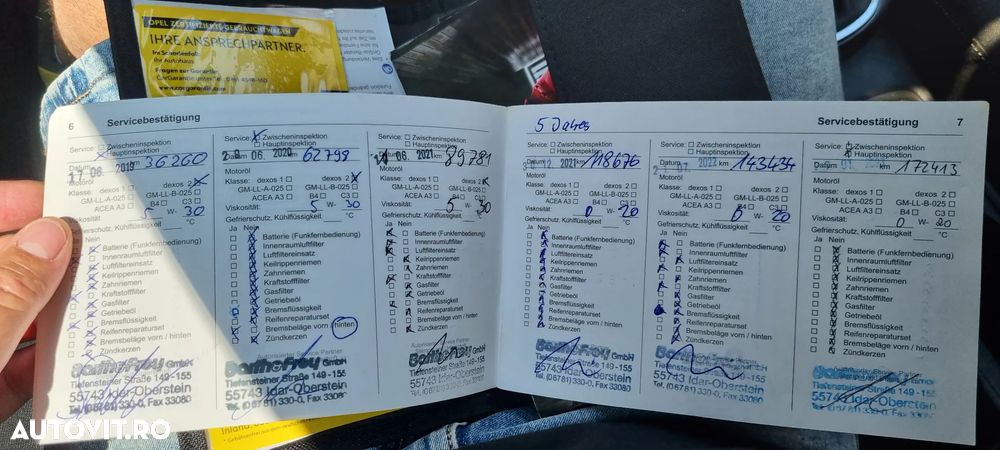 OPEL ZERTIFIZIERTE GEBRAUCHTWAGEN
IHRE ANSPRECHPARTNER.
Im Schadensfall:
Ihr Autohaus
Fragen zur Garantie:
www.cargarantie.com
6 Servicebestätigung
Service: Zwischeninspektion
Hauptinspektion
Datum 17 06. 2019 km 36260
Motoröl
Klasse: dexos 1 dexos 2
GM-LL-A-025 GM-LL-B-025
ACEA A3 B4 C3
Viskosität: 5 W- 30
Gefrierschutz, Kühlflüssigkeit °C
Ja Nein
Batterie (Funkfernbedienung)
Innenraumluftfilter
Luftfiltereinsatz
Keilrippenriemen
Zahnriemen
Kraftstofffilter
Gasfilter
Getriebeöl
Bremsflüssigkeit
Reifenreparaturset
Bremsbeläge vorn / hinten
Zündkerzen
GmbH
Tiefensteiner Straße 149 - 155
55743 Idar-Oberstein
Tel. (06781) 330-0, Fax 33080
Service: Zwischeninspektion
Hauptinspektion
Datum 06. 2020 km 62798
Motoröl
Klasse: dexos 1 dexos 2
GM-LL-A-025 GM-LL-B-025
ACEA A3 B4 C3
Viskosität: 5 W- 30
Gefrierschutz, Kühlflüssigkeit °C
Ja Nein
Batterie (Funkfernbedienung)
Innenraumluftfilter
Luftfiltereinsatz
Keilrippenriemen
Zahnriemen
Kraftstofffilter
Gasfilter
Getriebeöl
Bremsflüssigkeit
Reifenreparaturset
Bremsbeläge vorn / hinten
Zündkerzen
Autorisierter Service Partner
GmbH
Tiefensteiner Straße 149 - 155
55743 Idar-Oberstein
Tel. (06781) 330-0, Fax 33080
Service: Zwischeninspektion
Hauptinspektion
Datum 06. 2021 km 89781
Motoröl
Klasse: dexos 1 dexos 2
GM-LL-A-025 GM-LL-B-025
ACEA A3 B4 C3
Viskosität: 5 W- 30
Gefrierschutz, Kühlflüssigkeit °C
Ja Nein
Batterie (Funkfernbedienung)
Innenraumluftfilter
Luftfiltereinsatz
Keilrippenriemen
Zahnriemen
Kraftstofffilter
Gasfilter
Getriebeöl
Bremsflüssigkeit
Reifenreparaturset
Bremsbeläge vorn / hinten
Zündkerzen
GmbH
Tiefensteiner Straße 149 - 155
55743 Idar-Oberstein
Tel. (06781) 330-0, Fax 33080
5 Jahres Servicebestätigung 7
Service: Zwischeninspektion
Hauptinspektion
Datum 12 2021 km 118676
Motoröl
Klasse: dexos 1 dexos 2
GM-LL-A-025 GM-LL-B-025
ACEA A3 B4 C3
Viskosität: 0 W- 20
Gefrierschutz, Kühlflüssigkeit °C
Ja Nein
Batterie (Funkfernbedienung)
Innenraumluftfilter
Luftfiltereinsatz
Keilrippenriemen
Zahnriemen
Kraftstofffilter
Gasfilter
Getriebeöl
Bremsflüssigkeit
Reifenreparaturset
Bremsbeläge vorn / hinten
Zündkerzen
GmbH
Tiefensteiner Straße 149 -155
55743 Idar-Oberstein
Tel. (06781) 330-0, Fax 33080
Service: Zwischeninspektion
Hauptinspektion
Datum 2022 km 143434
Motoröl
Klasse: dexos 1 dexos 2
GM-LL-A-025 GM-LL-B-025
ACEA A3 B4 C3
Viskosität: 0 W- 20
Gefrierschutz, Kühlflüssigkeit °C
Ja Nein
Batterie (Funkfernbedienung)
Innenraumluftfilter
Luftfiltereinsatz
Keilrippenriemen
Zahnriemen
Kraftstofffilter
Gasfilter
Getriebeöl
Bremsflüssigkeit
Reifenreparaturset
Bremsbeläge vorn / hinten
Zündkerzen
Tiefensteiner Straße 149 -155
55743 Idar-Oberstein
Tel. (06781) 330-0, Fax 33080
Service: Zwischeninspektion
Hauptinspektion
Datum 01. km 172413
Motoröl
Klasse: dexos 1 dexos 2
GM-LL-A-025 GM-LL-B-025
ACEA A3 B4 C3
Viskosität: 0 W- 20
Gefrierschutz, Kühlflüssigkeit °C
Ja Nein
Batterie (Funkfernbedienung)
Innenraumluftfilter
Luftfiltereinsatz
Keilrippenriemen
Zahnriemen
Kraftstofffilter
Gasfilter
Getriebeöl
Bremsflüssigkeit
Reifenreparaturset
Bremsbeläge vorn / hinten
Zündkerzen
Tiefensteiner Straße 149 - 155
55743 Idar-Oberstein
Tel. (06781) 330-0, Fax 33080
AUTOVIT.RO